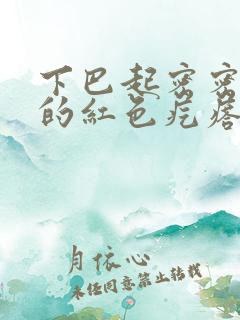 下巴起密密
的紅色疙瘩
月依心
未经同意禁止转载